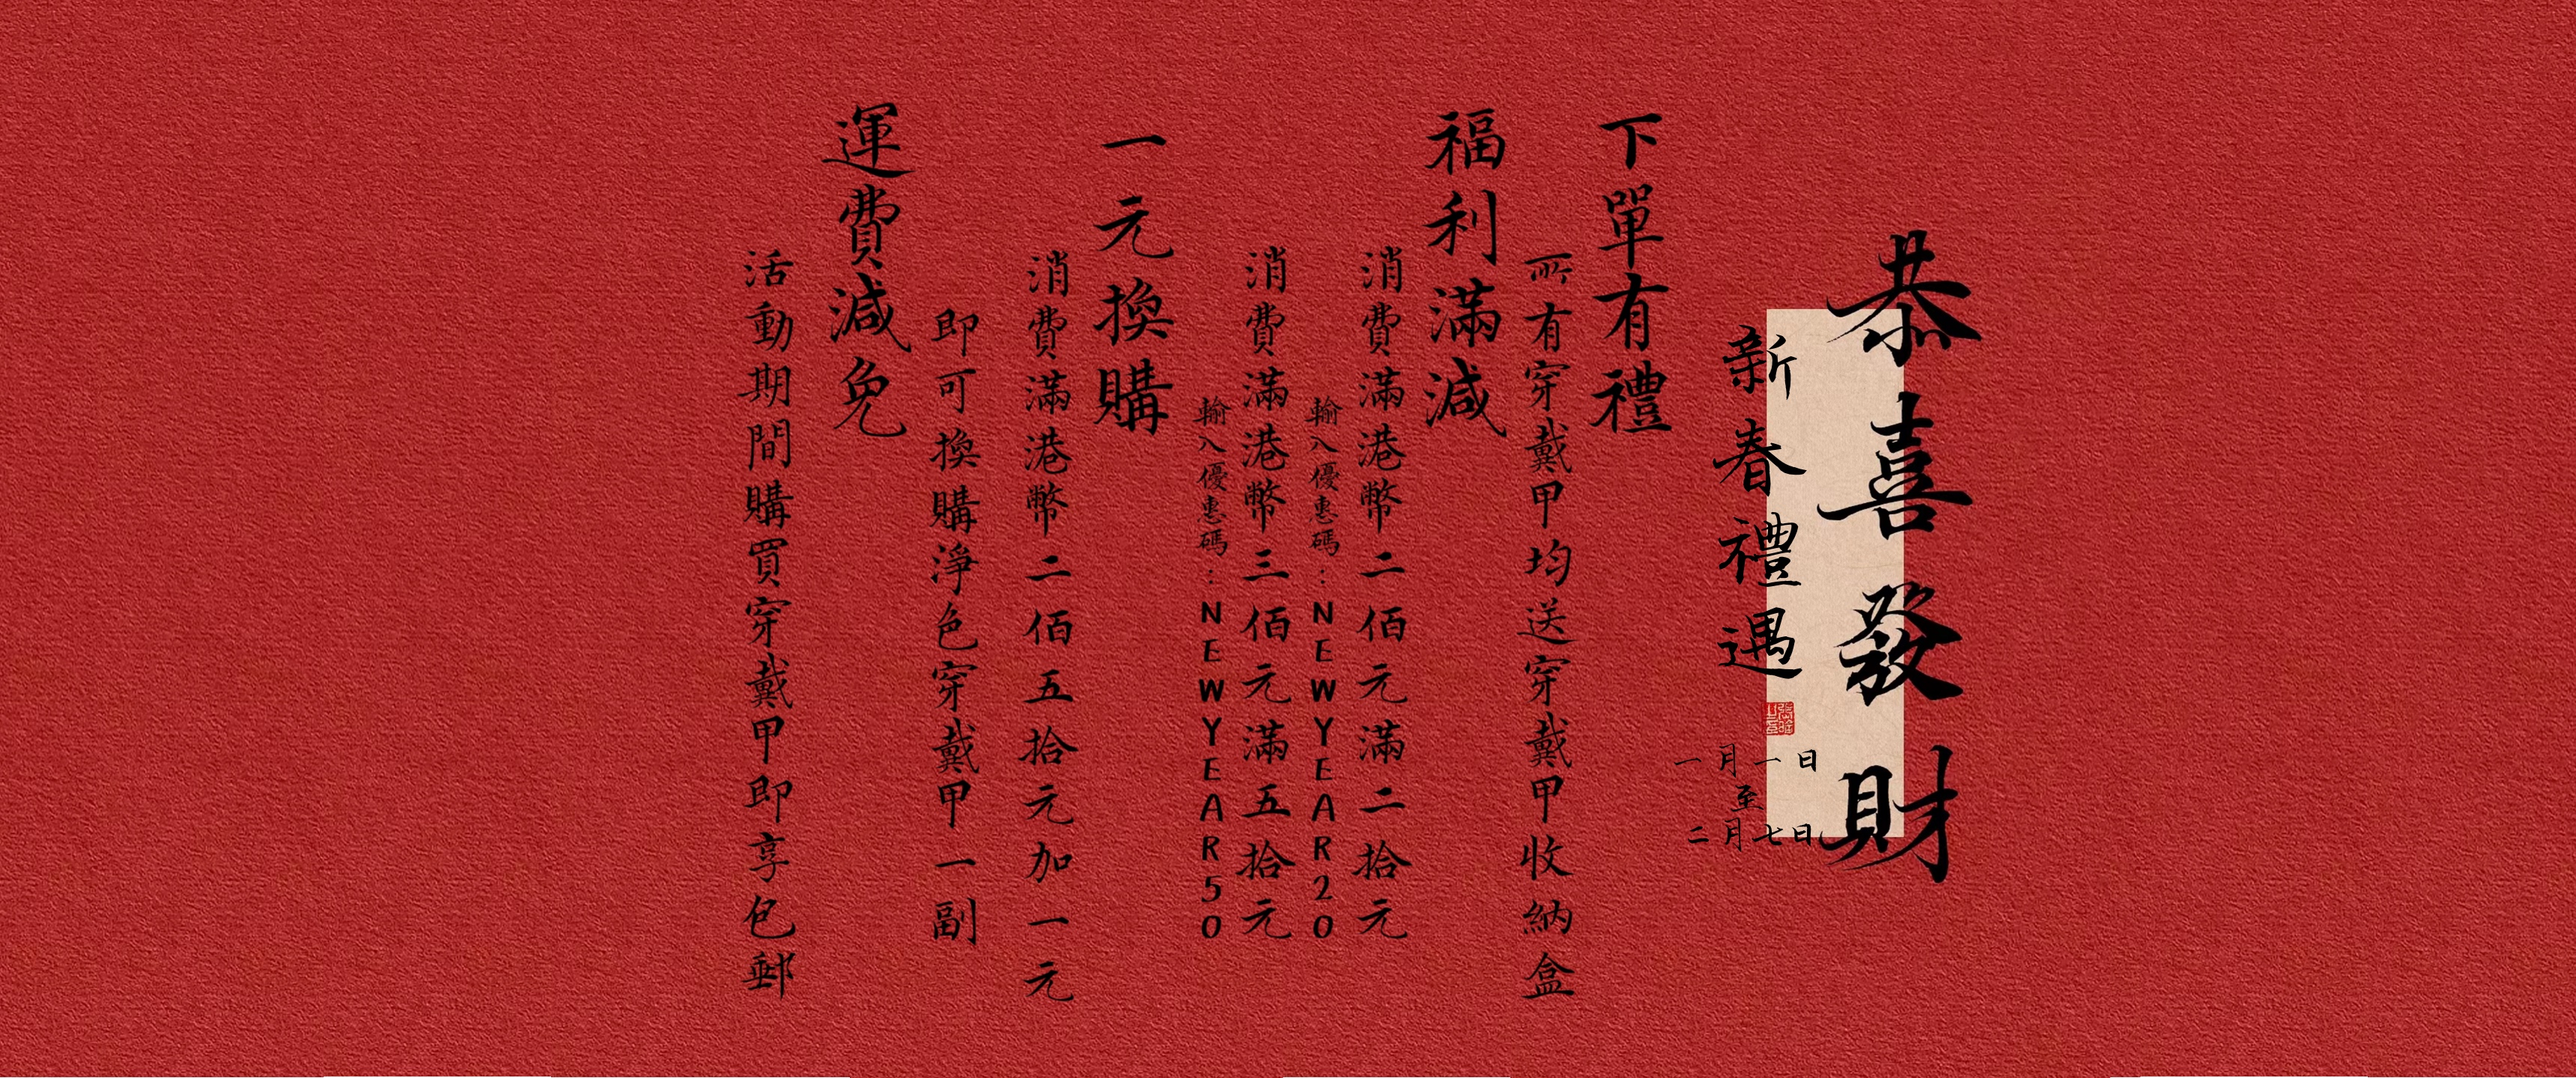 恭喜發財
新春禮遇
一月一日
至
二月七日
下單有禮
所有穿戴甲均送穿戴甲收納盒
福利滿減
消費滿港幣二佰元滿二拾元
輸入優惠碼：NEWYEAR20
消費滿港幣三佰元滿五拾元
輸入優惠碼：NEWYEAR50
一元換購
消費滿港幣二佰五拾元加一元
即可換購淨色穿戴甲一副
運費減免
活動期間購買穿戴甲即享包郵